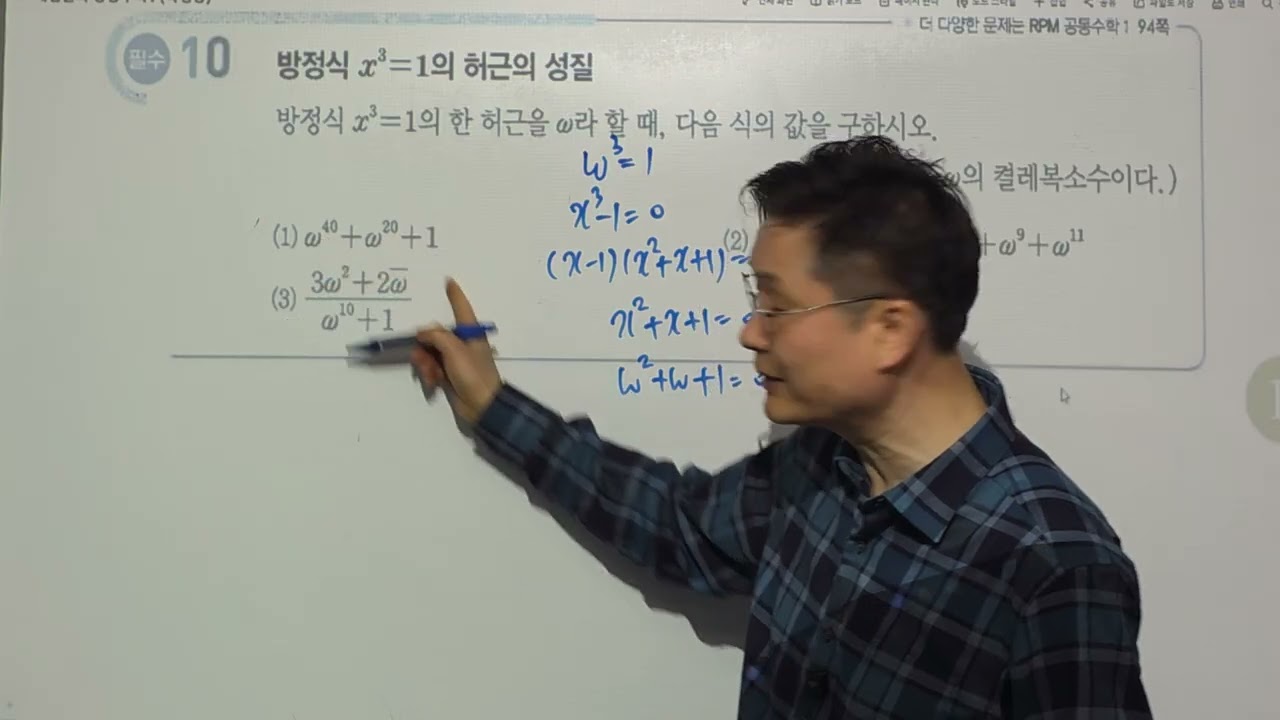 더 다양한 문제는 RPM 공통수학 1 94쪽
필수 10 방정식 x³=1의 허근의 성질
방정식 x³=1의 한 허근을 ω라 할 때, 다음 식의 값을 구하시오.
ω의 켤레복소수이다.)
(1) ω⁴⁰+ω²⁰+1
(2) +ω⁹+ω¹¹
(3) (3ω²+2ω̅)/(ω¹⁰+1)
ω³=1
x³-1=0
(x-1)(x²+x+1)=
x²+x+1=0
ω²+ω+1=0